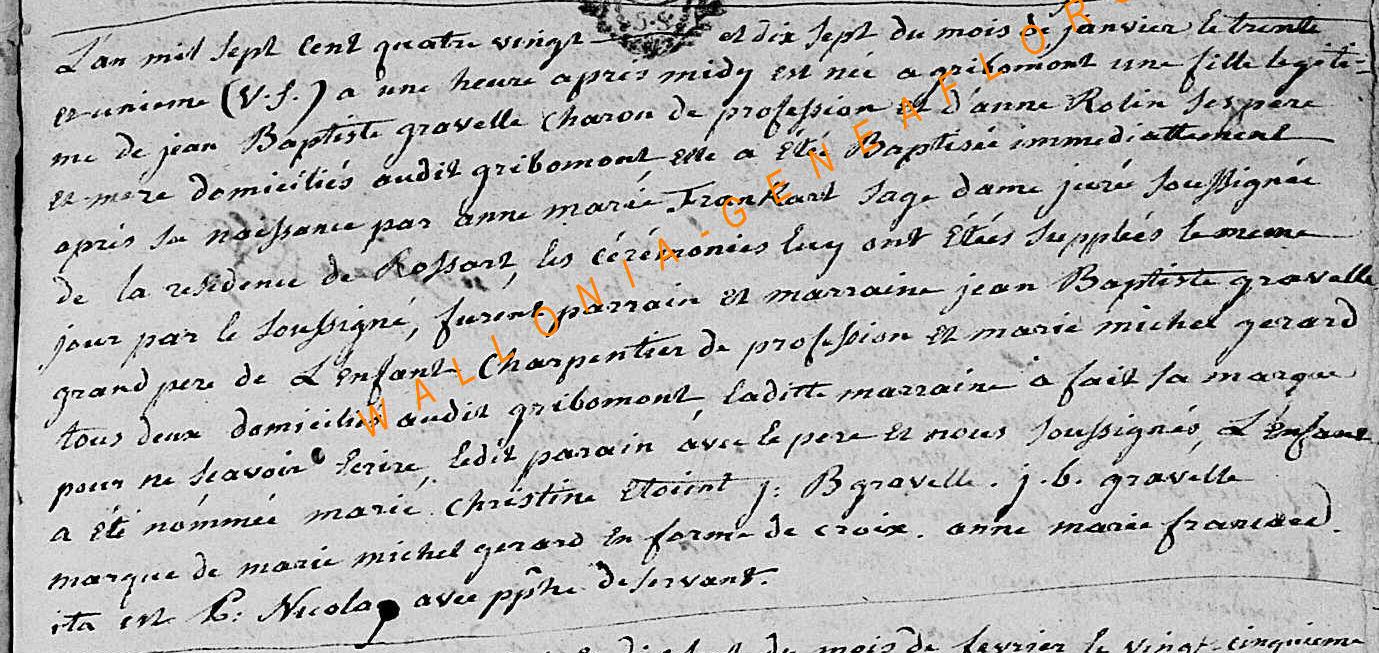 L'an mil sept Cent quatre vingt et dix sept du mois de janvier le trente
et unieme (V.S.) a une heure aprés midy est née a gribomont une fille legiti-
me de jean Baptiste gravelle Charon de profession et d'anne Rolin ses pere
et mere domiciliés audit gribomont, elle a Etée Baptisée immediattement
aprés sa naissance par anne marie Frankart sage dame jurée soussignée
de la residence de Rossart, les cérémonies luy ont Etées supplées le meme
jour par le soussigné, furent parrain et marraine jean Baptiste gravelle
grand pere de L'enfant Charpentier de profession et marie michel gerard
tous deux domiciliés audit gribomont, laditte marraine a fait sa marque
pour ne sçavoir Ecrire, ledit parain avec le pere et nous soussignés, L'enfant
a été nommée marie Christine Etoient j: B gravelle. j.b. gravelle
marque de marie michel gerard en forme de croix. anne marie
ita est Nicolay avec desservant.
du mois de fevrier le vingt cinquieme
WALLONIA-GENEAFLOR